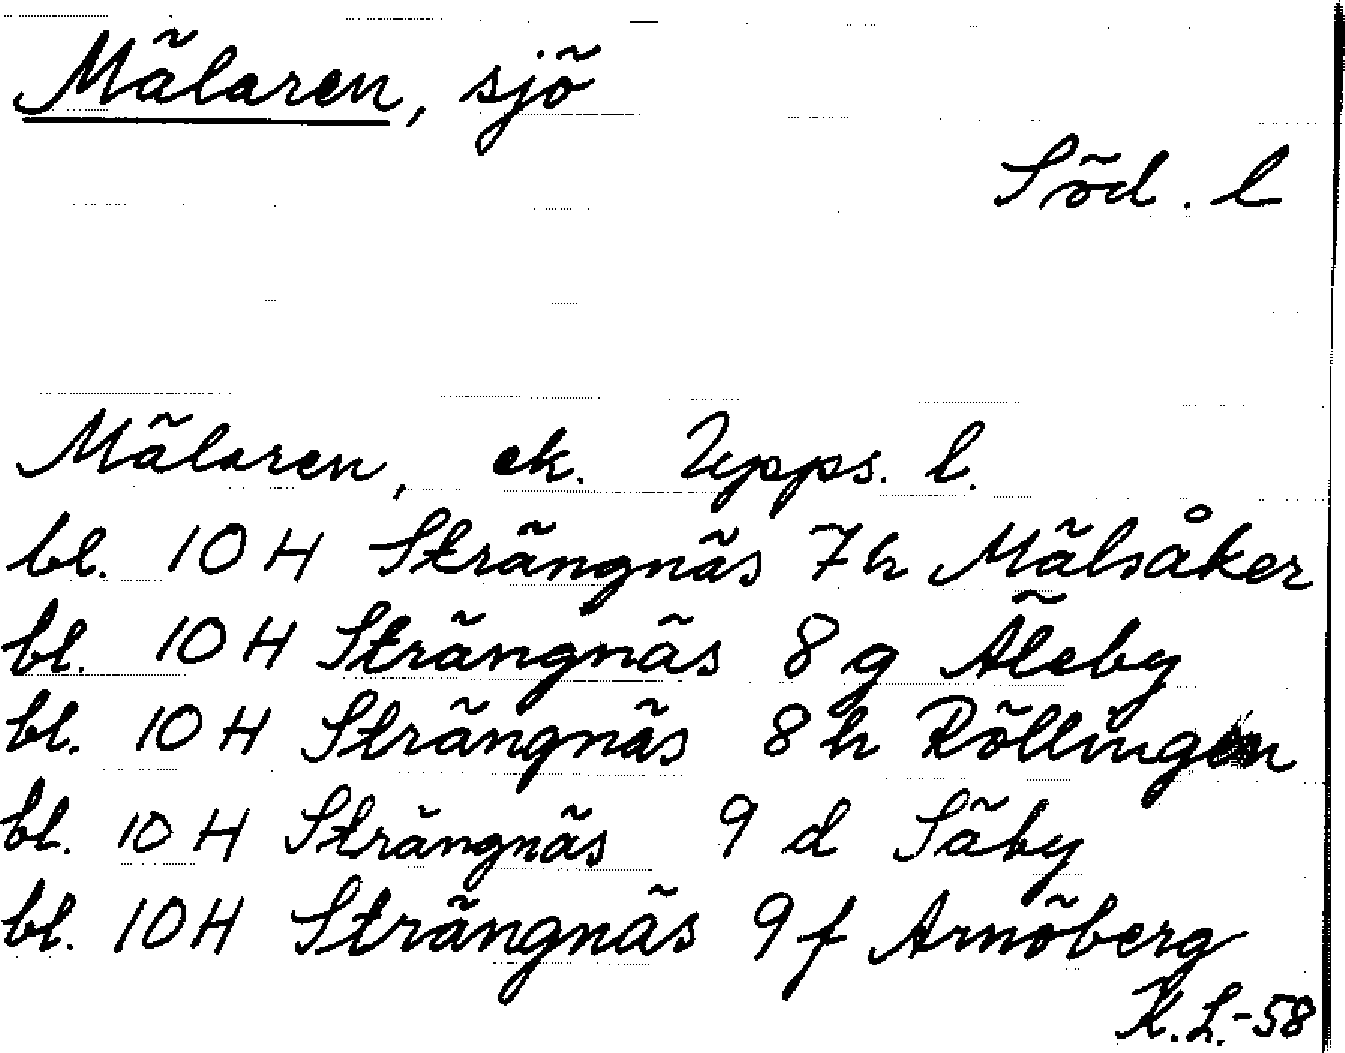 Mälaren, sjö
Söd. l
Mälaren, ek. Upps. l.
bl. 10 H Strängnäs 7h Mälsåker
bl. 10 H Strängnäs 8g Äleby
bl. 10 H Strängnäs 8h Röllingen
bl. 10 H Strängnäs 9 d Säby
bl. 10 H Strängnäs 9f Arnöberg
K.L.-58